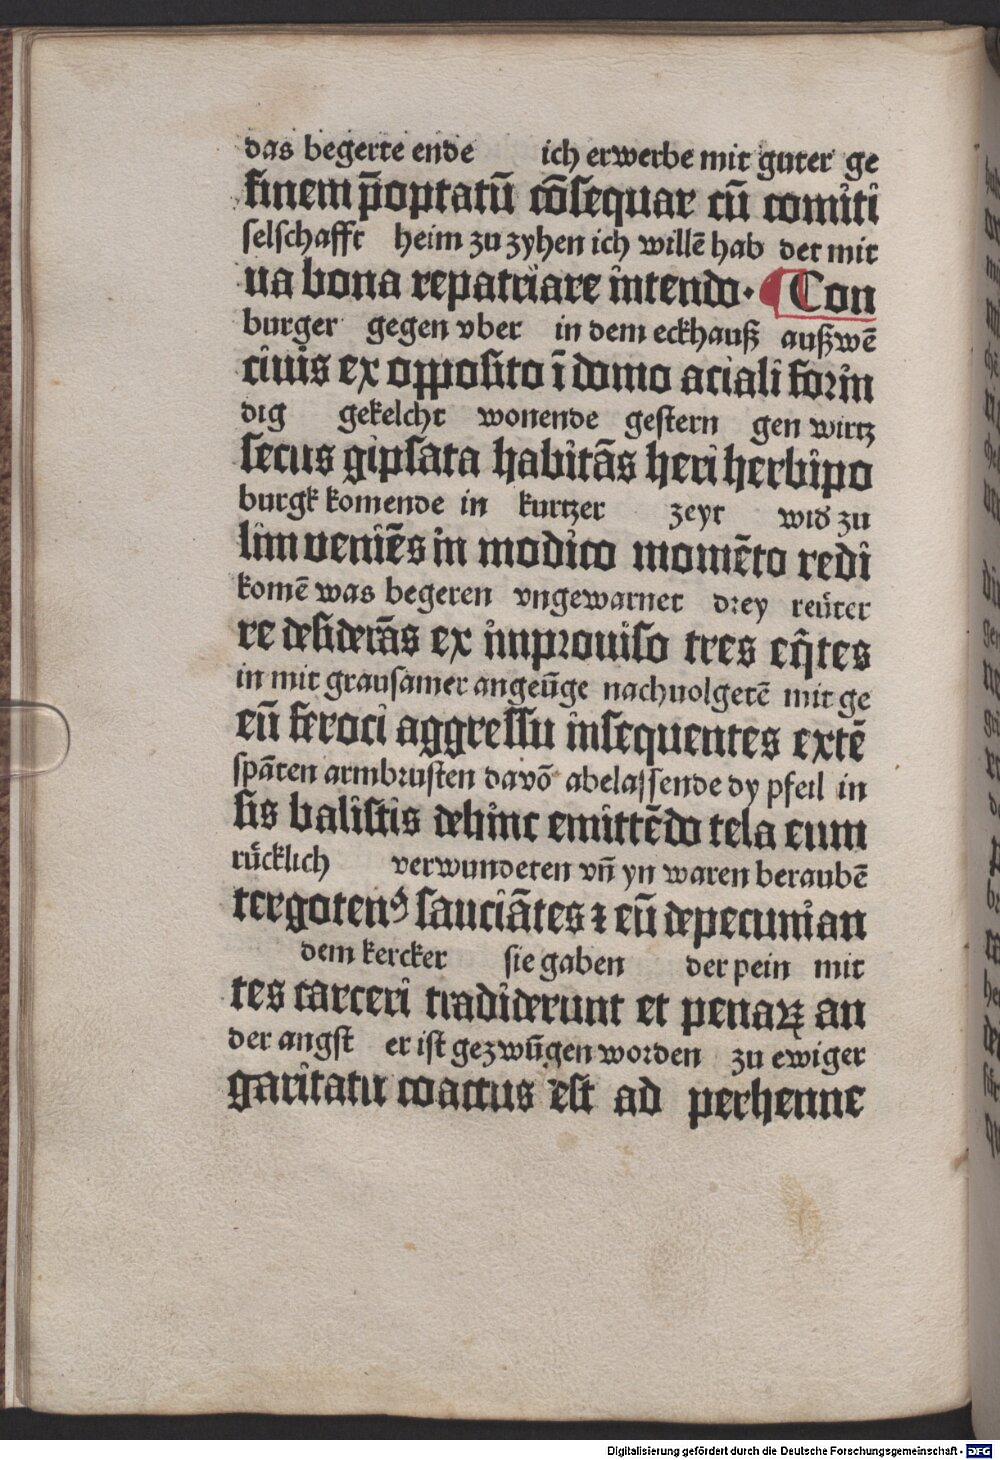 das begerte ende ich erwerbe mit guter ge
finem p̄optatū cōsequar cū comiti
selschafft heim zu zyhen ich willē hab der mit
ua bona repatriare intendo. Con
burger gegen vber in dem eckhauß außwē
ciuis ex opposito ī domo aciali forin
dig gekelcht wonende gestern gen wirtz
secus gipsata habitās heri herbipo
burgk komende in kurtzer zeyt wið zu
lim veniēs in modico momēto redi
komē was begeren vngewarnet drey reüter
re desiderās ex improuiso tres eq̄tes
in mit grausamer angeūge nachuolgetē mit ge
eū feroci aggressu insequentes extē
spāten armbrusten davō abelassende dy pfeil in
sis balistis dehinc emittēdo tela eum
rücklich verwundeten vn̄ yn waren beraubē
tergotenꝰ sauciātes ⁊ eū depecunian
dem kercker sie gaben der pein mit
tes carceri tradiderunt et penaꝝ an
der angst er ist gezwūgen worden zu ewiger
garitatu coactus est ad perhenne
Digitalisierung gefördert durch die Deutsche Forschungsgemeinschaft - DFG